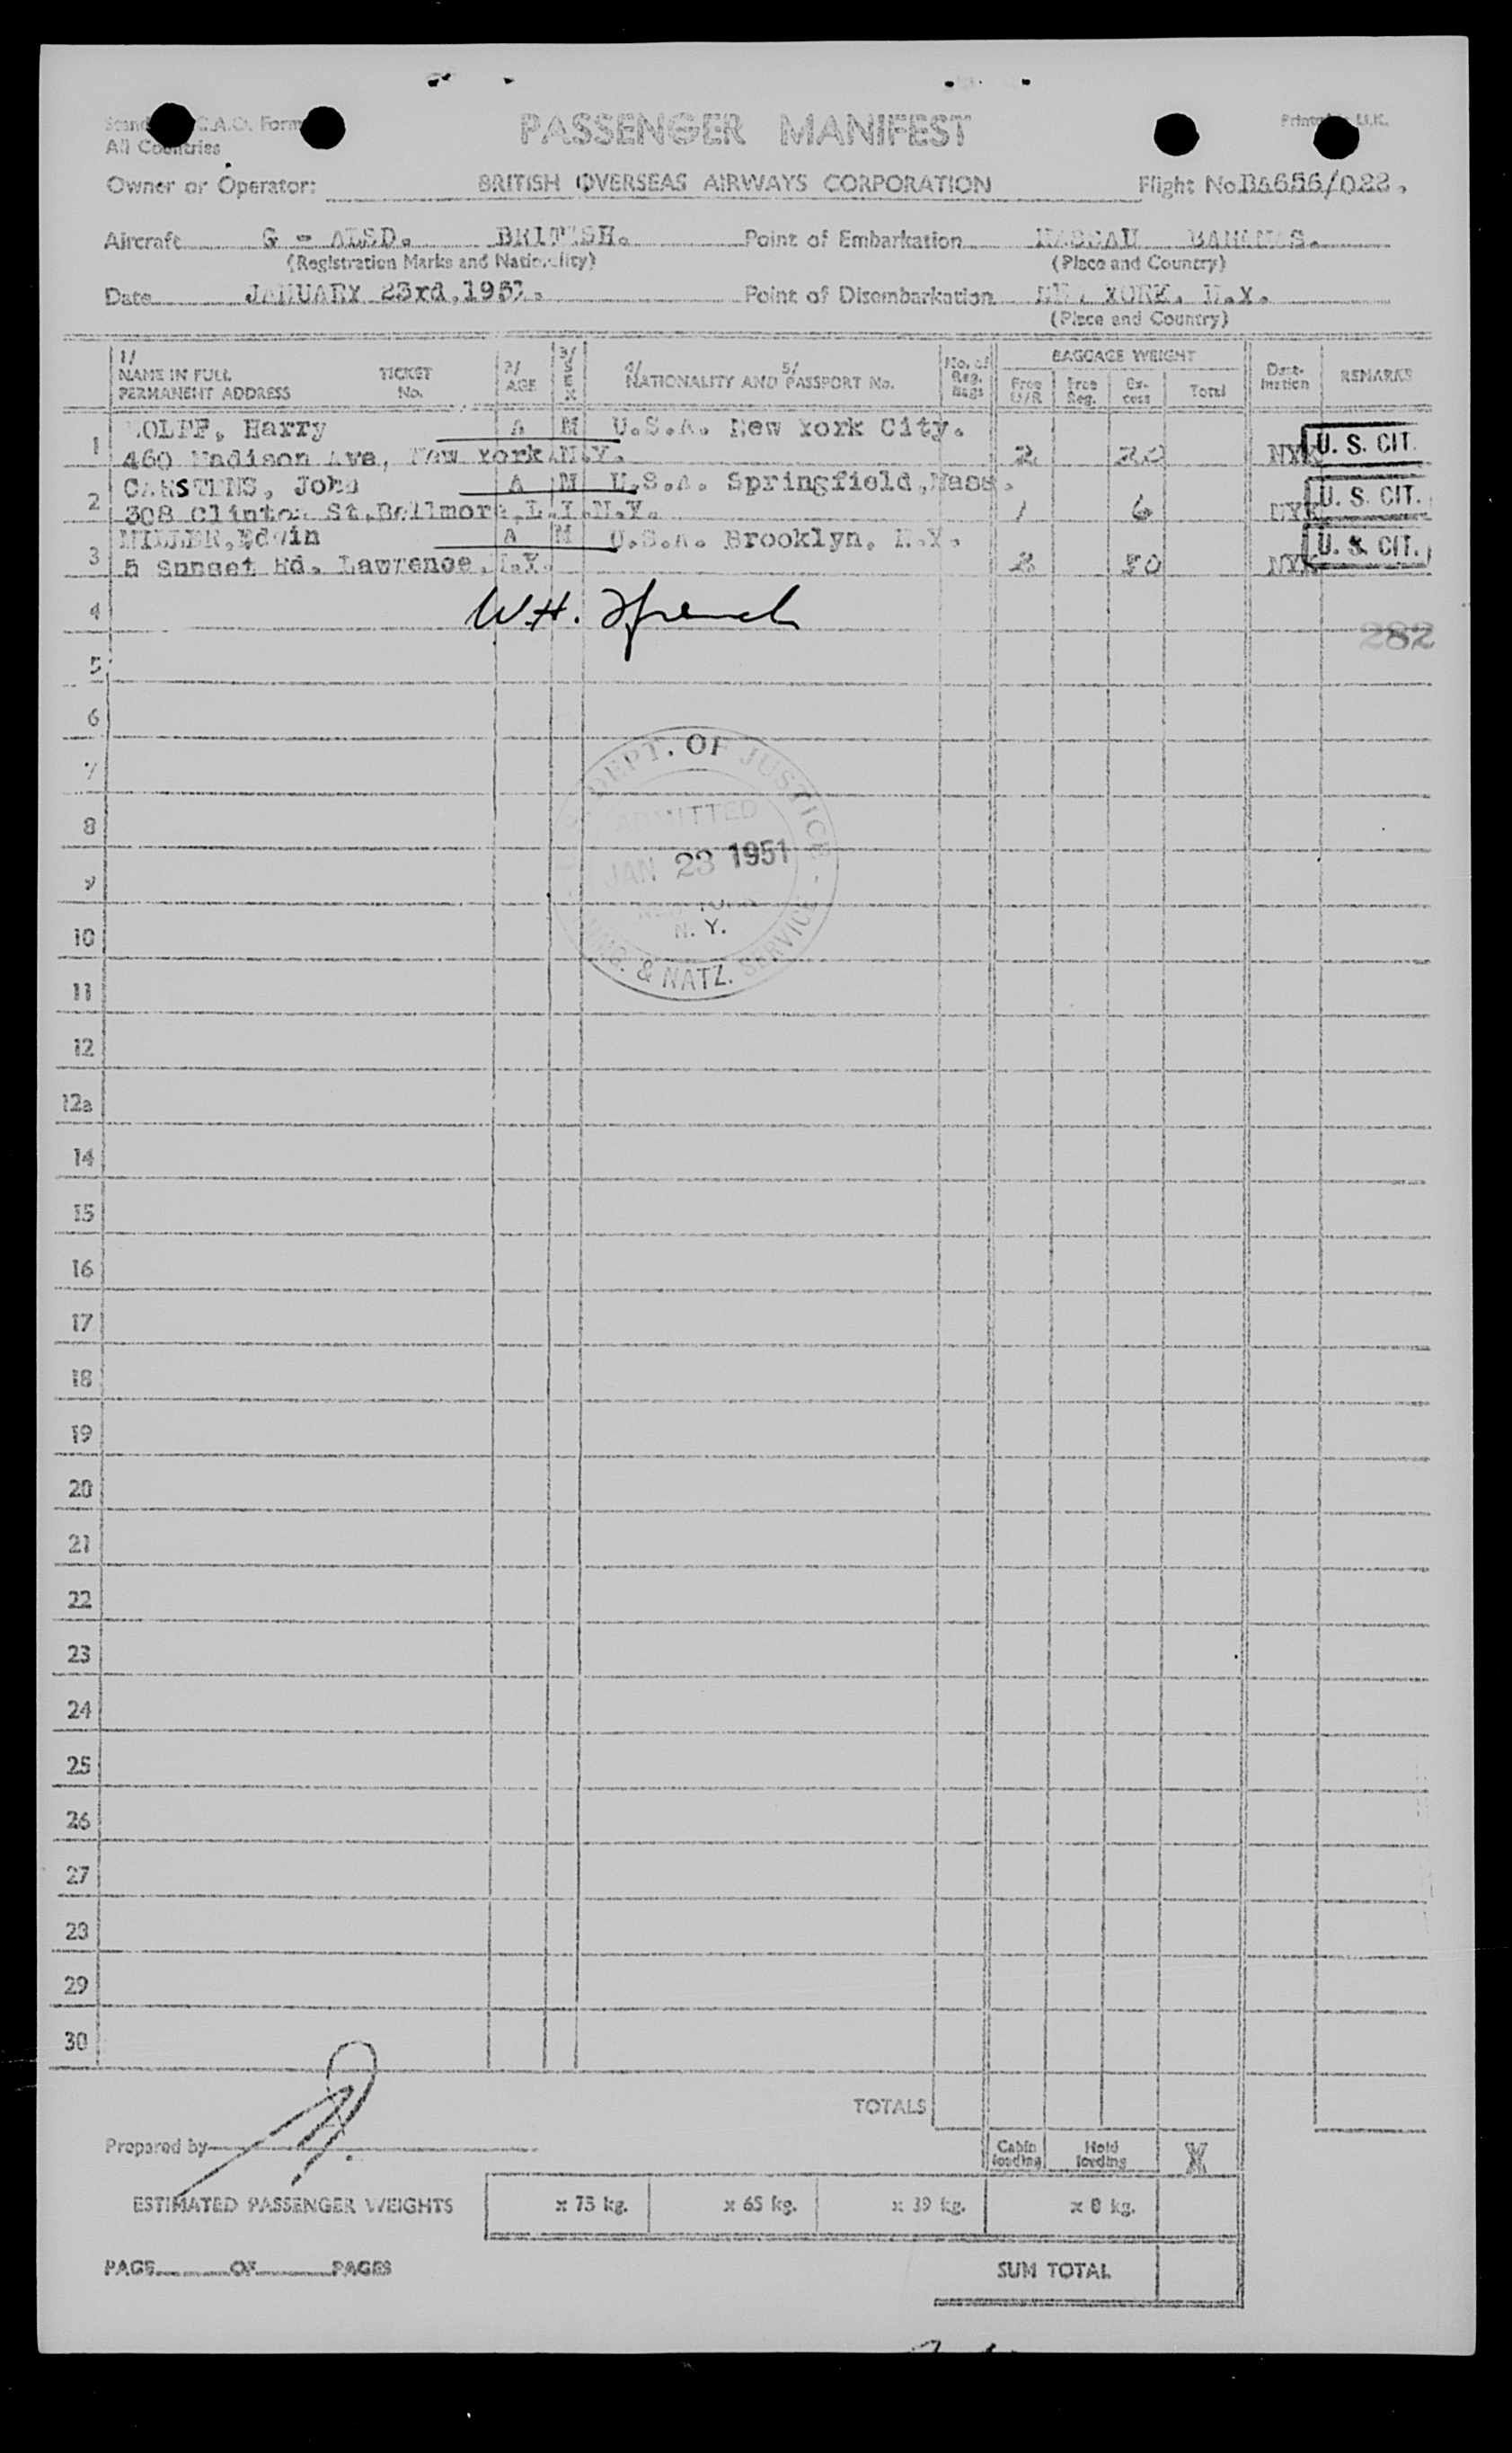 All Countries
PASSENGER MANIFEST
Owner or Operator: BRITISH OVERSEAS AIRWAYS CORPORATION Flight No. BA656/022.
Aircraft G - ALSD. BRITISH. Point of Embarkation NASSAU BAHAMAS.
(Registration Marks and Nationality) (Place and Country)
Date JANUARY 23rd, 1951. Point of Disembarkation NEW YORK, N.Y.
(Place and Country)
1/ NAME IN FULL PERMANENT ADDRESS TICKET No. 2/ AGE 3/ SEX 4/ 5/ NATIONALITY AND PASSPORT No. No. of Reg. Bags BAGGAGE WEIGHT Free U/R Free Reg. Excess Total Destination REMARKS
1 WOLFF, Harry A M U.S.A. New York City.
460 Madison Ave, New York N.Y. 2 20 NYK U. S. CIT.
2 CARSTENS, John A M U.S.A. Springfield, Mass.
308 Clinton St. Bellmore, L.I.N.Y. 1 6 NYK U. S. CIT.
3 MILLER, Edwin A M U.S.A. Brooklyn, N.Y.
5 Sunset Rd. Lawrence, N.Y. 2 NYK U. S. CIT.
4 W.H. French
282
5
6
7
DEPT. OF JUSTICE
8
ADMITTED
JAN 23 1951
9
NEW YORK
N. Y.
10
IMMG. & NATZ. SERVICE
11
12
12a
14
15
16
17
18
19
20
21
22
23
24
25
26
27
28
29
30
TOTALS
Prepared by
Cabin loading Hold loading X
ESTIMATED PASSENGER WEIGHTS x 75 kg. x 65 kg. x 39 kg. x 8 kg.
PAGE OF PAGES SUM TOTAL